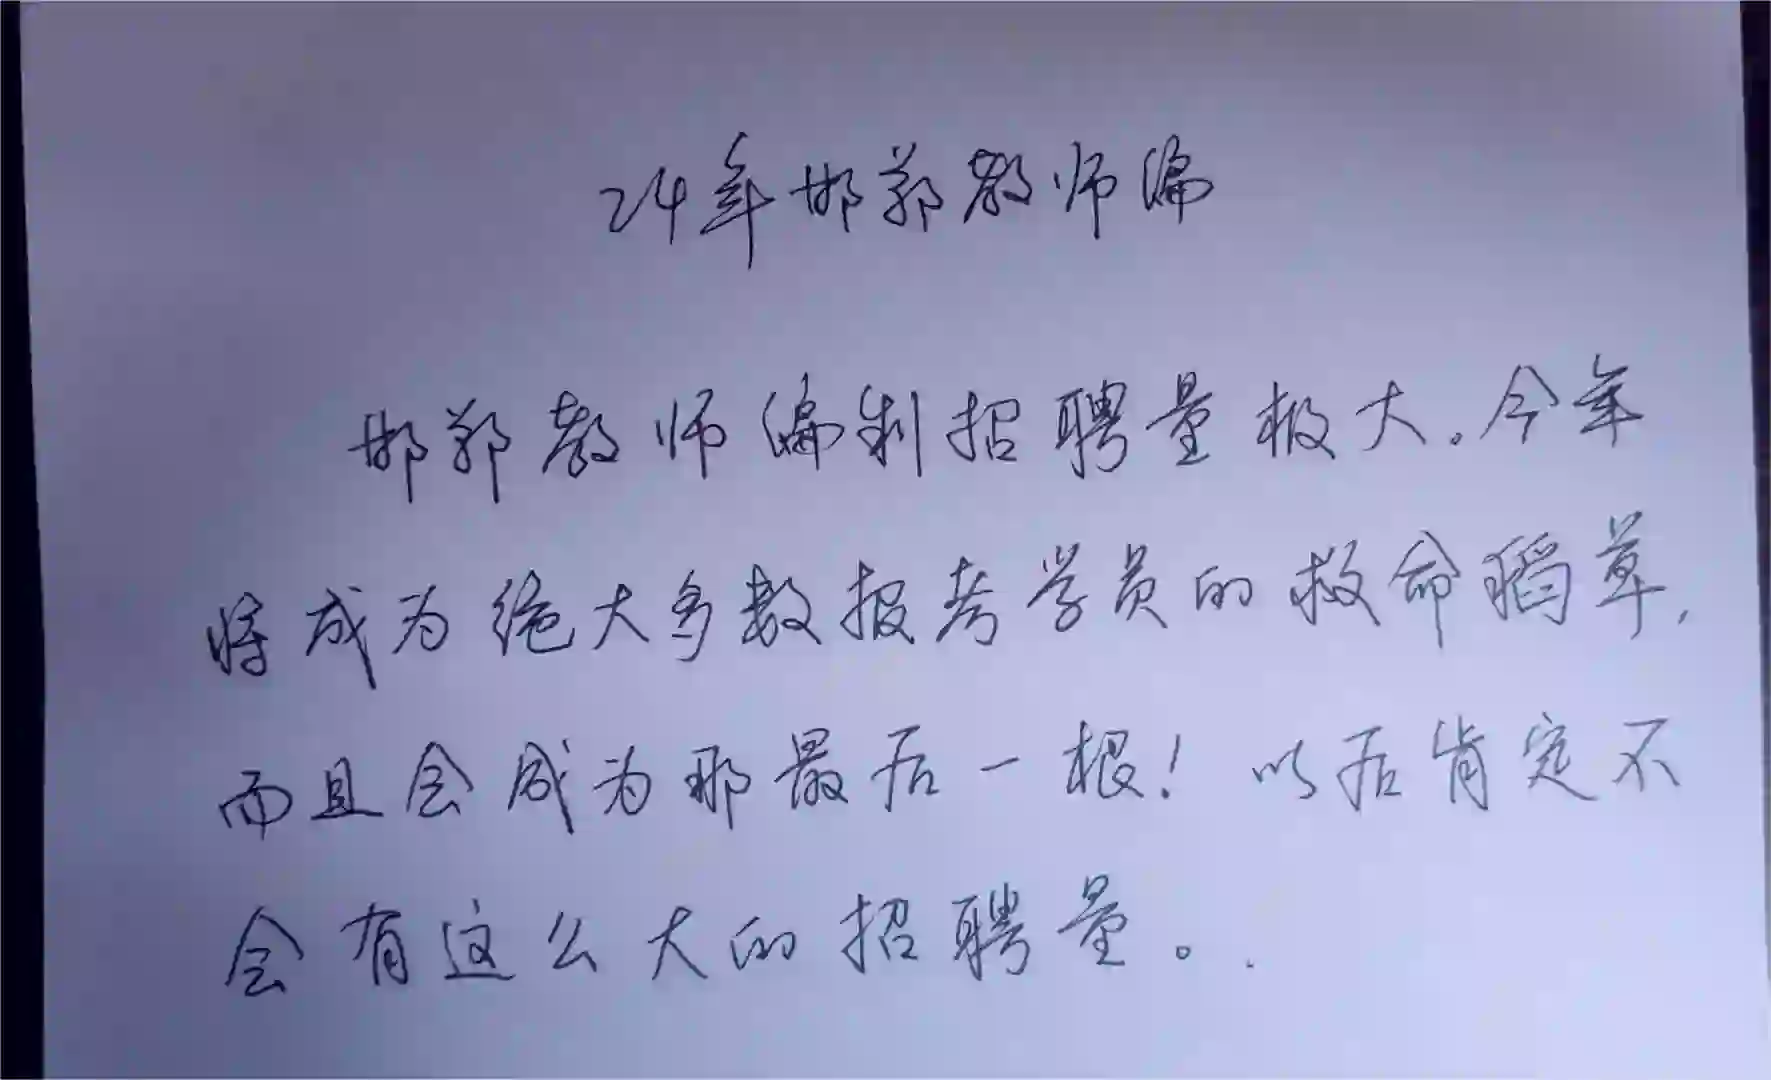 24年邯郸教师编
邯郸教师编制招聘量极大。今年
将成为绝大多数报考学员的救命稻草，
而且会成为那最后一根！以后肯定不
会有这么大的招聘量。